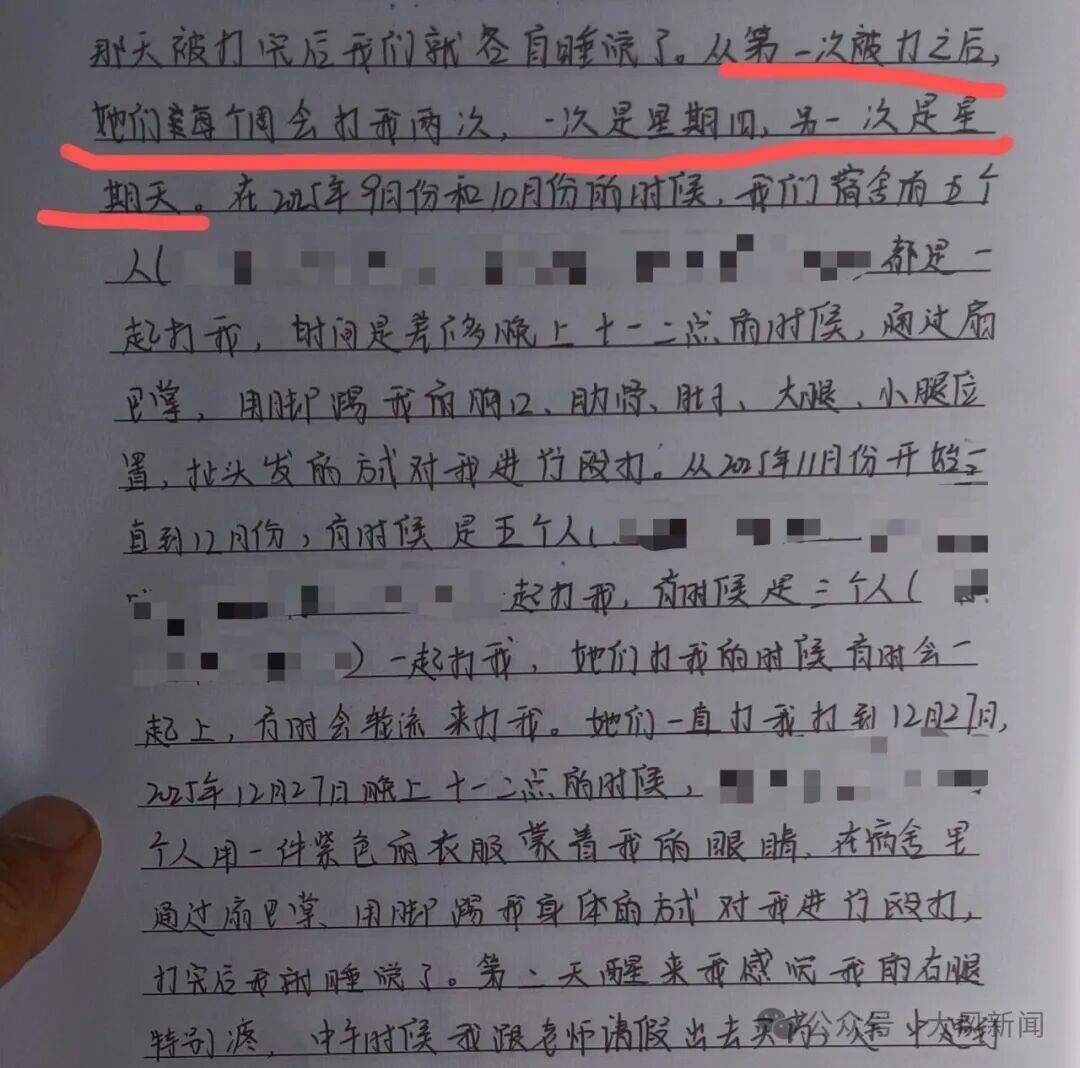 那天被打完后我们就各自睡觉了。从第一次被打之后,
她们每个周会打我两次,一次是星期四,另一次是星
期天。在2025年9月份和10月份的时候,我们宿舍有五个
人( 都是一
起打我,时间是差不多晚上十一二点的时候,通过扇
巴掌、用脚踢我的胸口、肋骨、肚子、大腿、小腿位
置,扯头发的方式对我进行殴打。从2025年11月份开始一
直到12月份,有时候是五个人(
起打我,有时候是三个人(
)一起打我,她们打我的时候有时会一
起上,有时会轮流来打我。她们一直打我打到12月27日,
2025年12月27日晚上十一二点的时候,
个人用一件紫色的衣服蒙着我的眼睛,在宿舍里
通过扇巴掌、用脚踢我身体的方式对我进行殴打,
打完后我就睡觉了。第二天醒来我感觉我的右腿
特别疼,中午时候我跟老师请假出去买
公众号·大风新闻